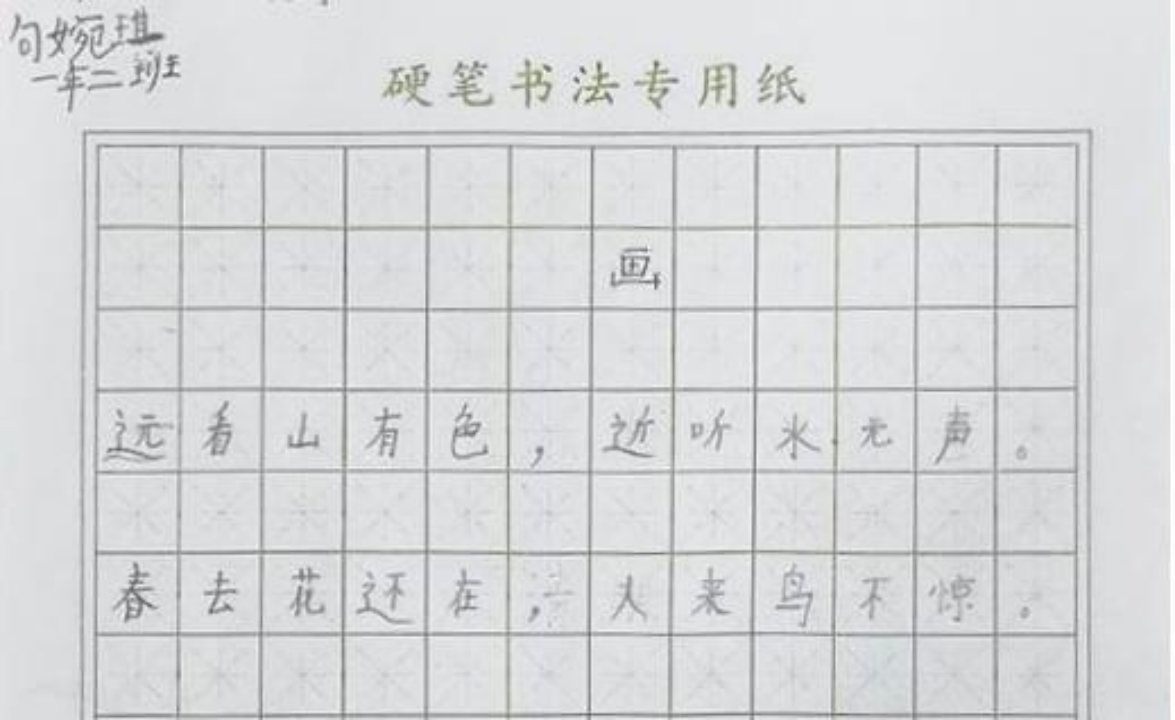 句婉琪
一年二班
硬笔书法专用纸
画
远看山有色，近听水无声。
春去花还在，人来鸟不惊。